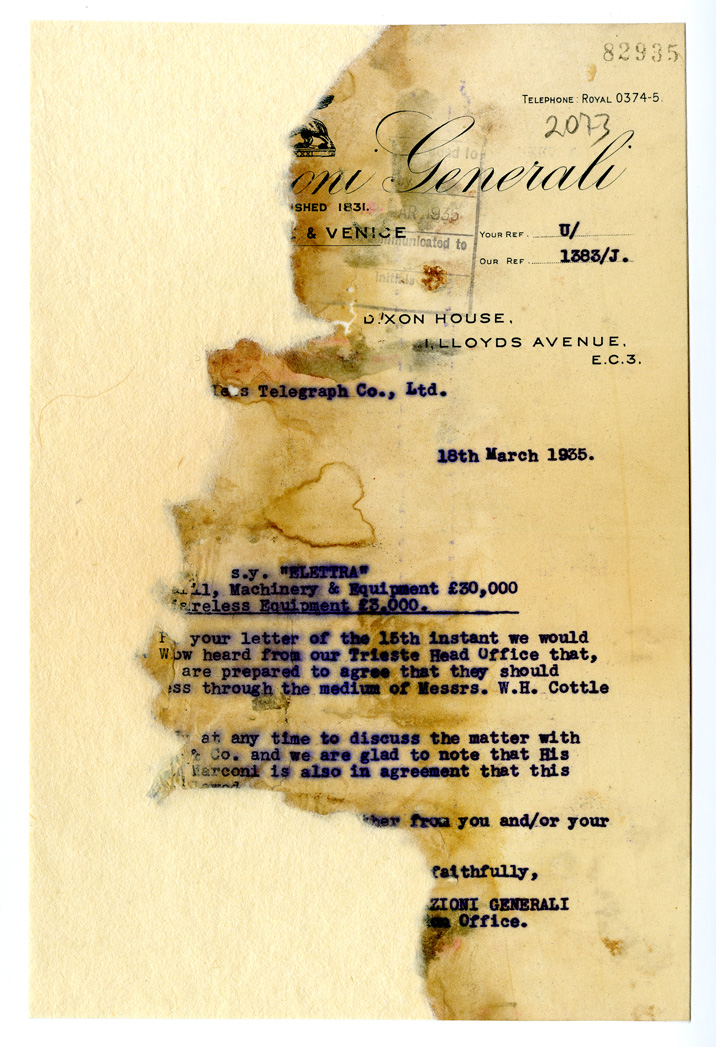 82935
TELEPHONE: ROYAL 0374-5.
2073
oni Generali
SHED 1831.
AR 1935
& VENICE
YOUR REF. U/
mmunicated to
OUR REF. 1383/J.
Initials
DIXON HOUSE,
1, LLOYDS AVENUE,
E.C.3.
Telegraph Co., Ltd.
18th March 1935.
s.y. "ELETTRA"
Machinery & Equipment £30,000
ireless Equipment £3,000.
your letter of the 15th instant we would
ow heard from our Trieste Head Office that,
are prepared to agree that they should
ss through the medium of Messrs. W.H. Cottle
at any time to discuss the matter with
& Co. and we are glad to note that His
Marconi is also in agreement that this
lowed
her from you and/or your
faithfully,
ZIONI GENERALI
Office.